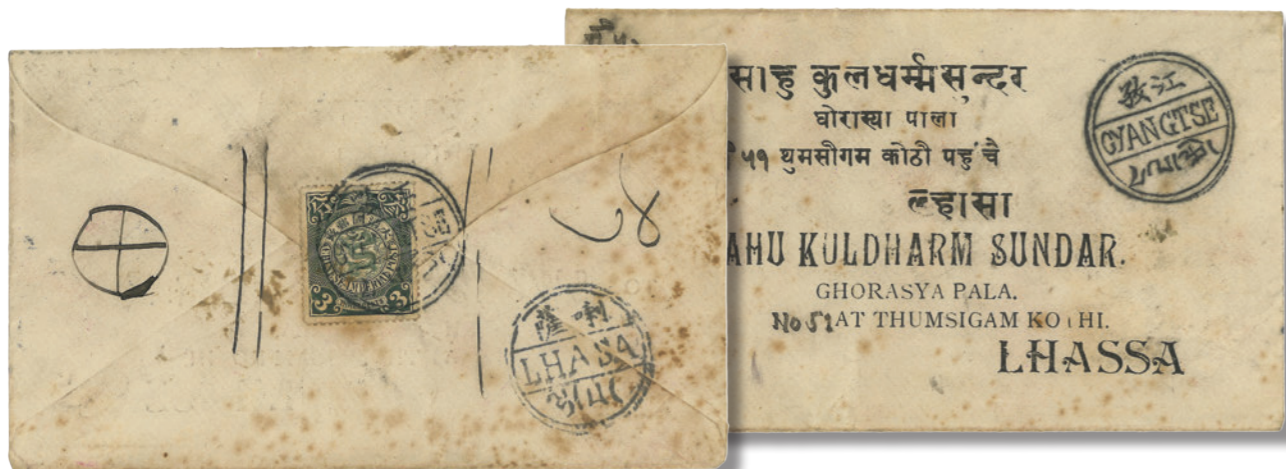 3 3
薩喇
LHASA
साहु कुलधर्म्मसुन्दर
घोरास्या पाला
५१ थुमसीगम कोठी पहुंचै
ल्हासा
AHU KULDHARM SUNDAR.
GHORASYA PALA.
No 51 AT THUMSIGAM KOTHI.
LHASSA
孜江
GYANGTSE